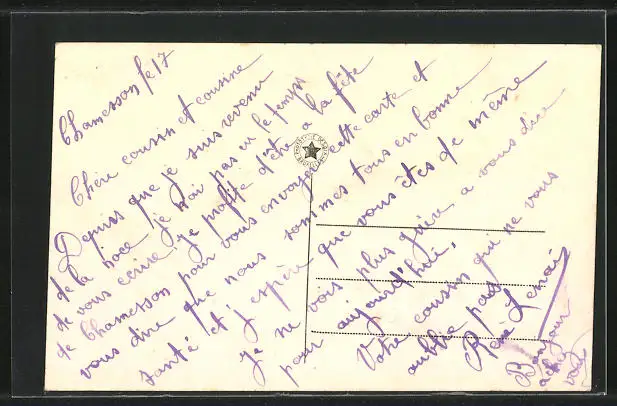 Chamesson le 17
Chère cousin et cousine
Depuis que je suis revenu
de la noce je n'ai pas eu le temps
de vous ecrire je profite d'être a la fête
de Chamesson pour vous envoyer cette carte et
vous dire que nous sommes tous en bonne
santé et j'espère que vous êtes de même
je ne vois plus guère a vous dire
pour aujourd'hui,
Votre cousin qui ne vous
oublie pas
René Lemai
Bonjour
a
vous